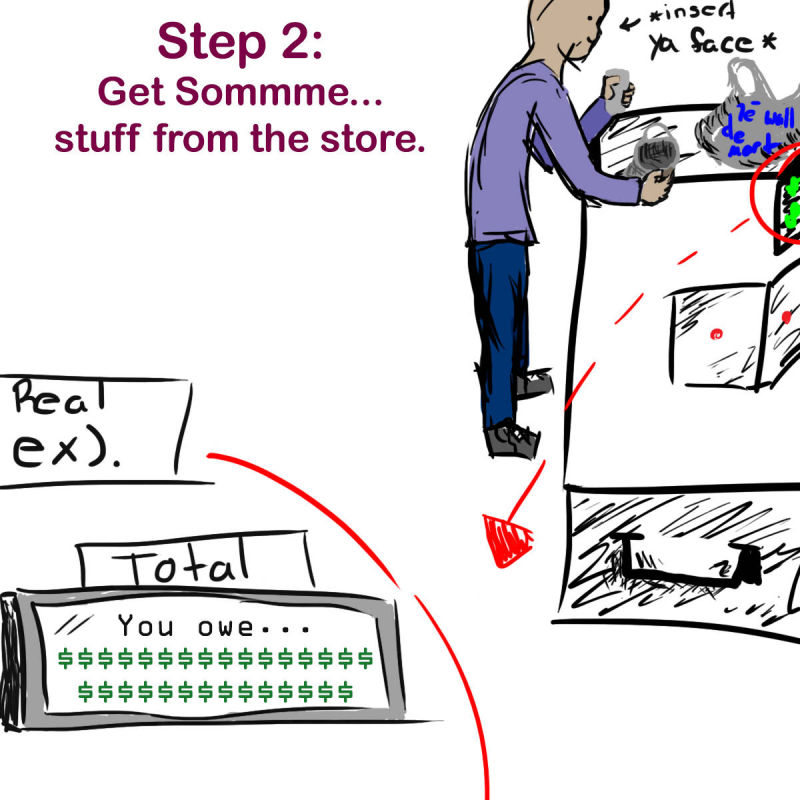 Step 2:
Get Sommme...
stuff from the store.
*insert
ya face*
wall
de
mart
Real
ex).
Total
You owe...
$$$$$$$$$$$$$$$$
$$$$$$$$$$$$$$